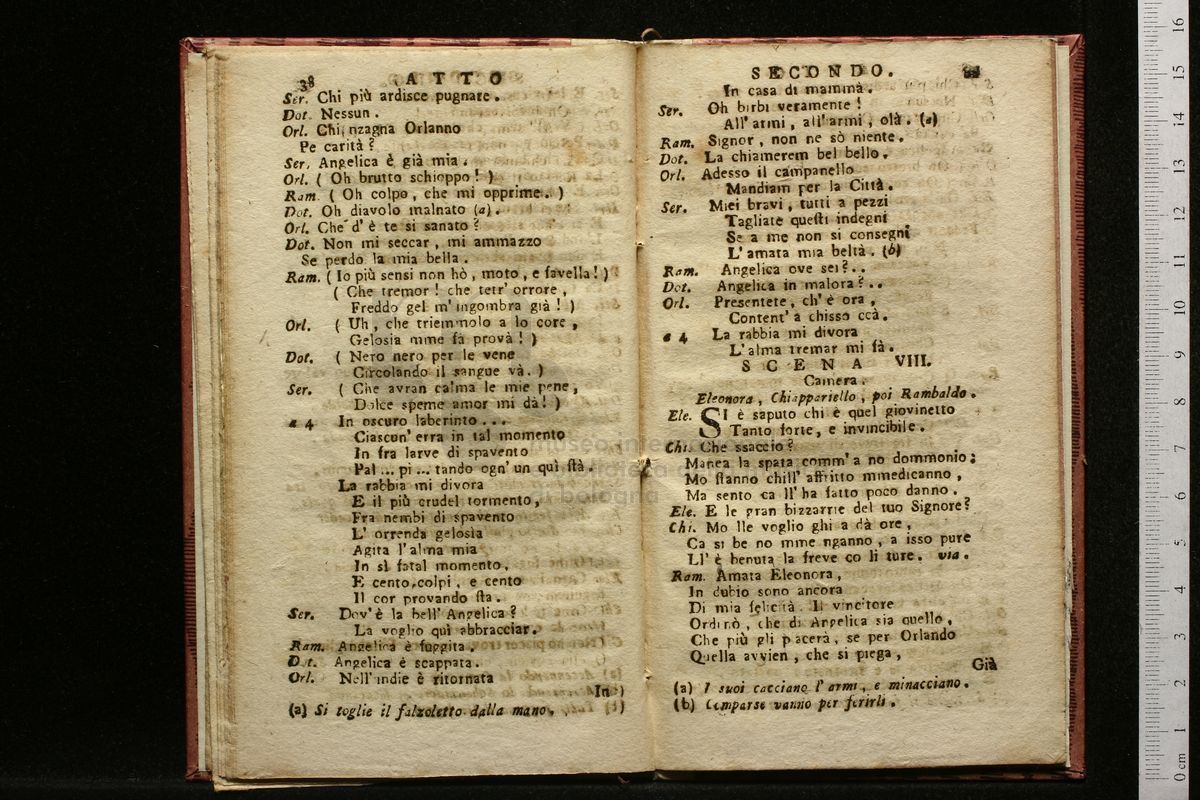 38 ATTO
Ser. Chi più ardisce pugnare.
Dot. Nessun.
Orl. Chi nzagna Orlanno
Pe carità?
Ser. Angelica è già mia.
Orl. ( Oh brutto schioppo! )
Ram. ( Oh colpo, che mi opprime.. )
Dot. Oh diavolo malnato (a).
Orl. Che d' è te si sanato?
Dot. Non mi seccar, mi ammazzo
Se perdo la mia bella.
Ram. ( Io più sensi non hò, moto, e favella! )
( Che tremor! che tetr' orrore,
Freddo gel m' ingombra già! )
Orl. ( Uh, che triemmolo a lo core,
Gelosia mme fa provà! )
Dot. ( Nero nero per le vene
Circolando il sangue và. )
Ser. ( Che avran calma le mie pene,
Dolce speme amor mi dà! )
a 4 In oscuro laberinto...
Ciascun' erra in tal momento
In fra larve di spavento
Pal... pi... tando ogn' un quì stà.
La rabbia mi divora
E il più crudel tormento,
Fra nembi di spavento
L' orrenda gelosia
Agita l'alma mia
In sì fatal momento,
E cento colpi, e cento
Il cor provando sta.
Ser. Dov' è la bell' Angelica?
La voglio quì abbracciar.
Ram. Angelica è fuggita.
Dot. Angelica è scappata.
Orl. Nell' indie è ritornata
In
(a) Si toglie il falzoletto dalla mano.
SECONDO.
In casa di mammà.
Ser. Oh birbi veramente!
All' armi, all' armi, olà. (a)
Ram. Signor, non ne sò niente.
Dot. La chiamerem bel bello.
Orl. Adesso il campanello
Mandiam per la Città.
Ser. Miei bravi, tutti a pezzi
Tagliate questi indegni
Se a me non si consegni
L' amata mia beltà. (b)
Ram. Angelica ove sei?..
Dot. Angelica in malora?..
Orl. Presentete, ch' è ora,
Content' a chisso ccà.
a 4 La rabbia mi divora
L'alma tremar mi fà.
SCENA VIII.
Camera.
Eleonora, Chiappariello, poi Rambaldo.
Ele. SI è saputo chi è quel giovinetto
Tanto forte, e invincibile.
Chi. Che ssaccio?
Manea la spata comm' a no dommonio;
Mo stanno chill' affritto mmedicanno,
Ma sento ca ll' ha fatto poco danno.
Ele. E le gran bizzarrie del tuo Signore?
Chi. Mo lle voglio ghi a dà ore,
Ca si be no mme nganno, a isso pure
Ll' è benuta la freve co li ture. via.
Ram. Amata Eleonora,
In dubio sono ancora
Di mia felicità. Il vincitore
Ordinò, che di Angelica sia quello,
Che più gli piacerà, se per Orlando
Quella avvien, che si piega,
Già
(a) I suoi cacciano l' armi, e minacciano.
(b) Comparse vanno per ferirli.